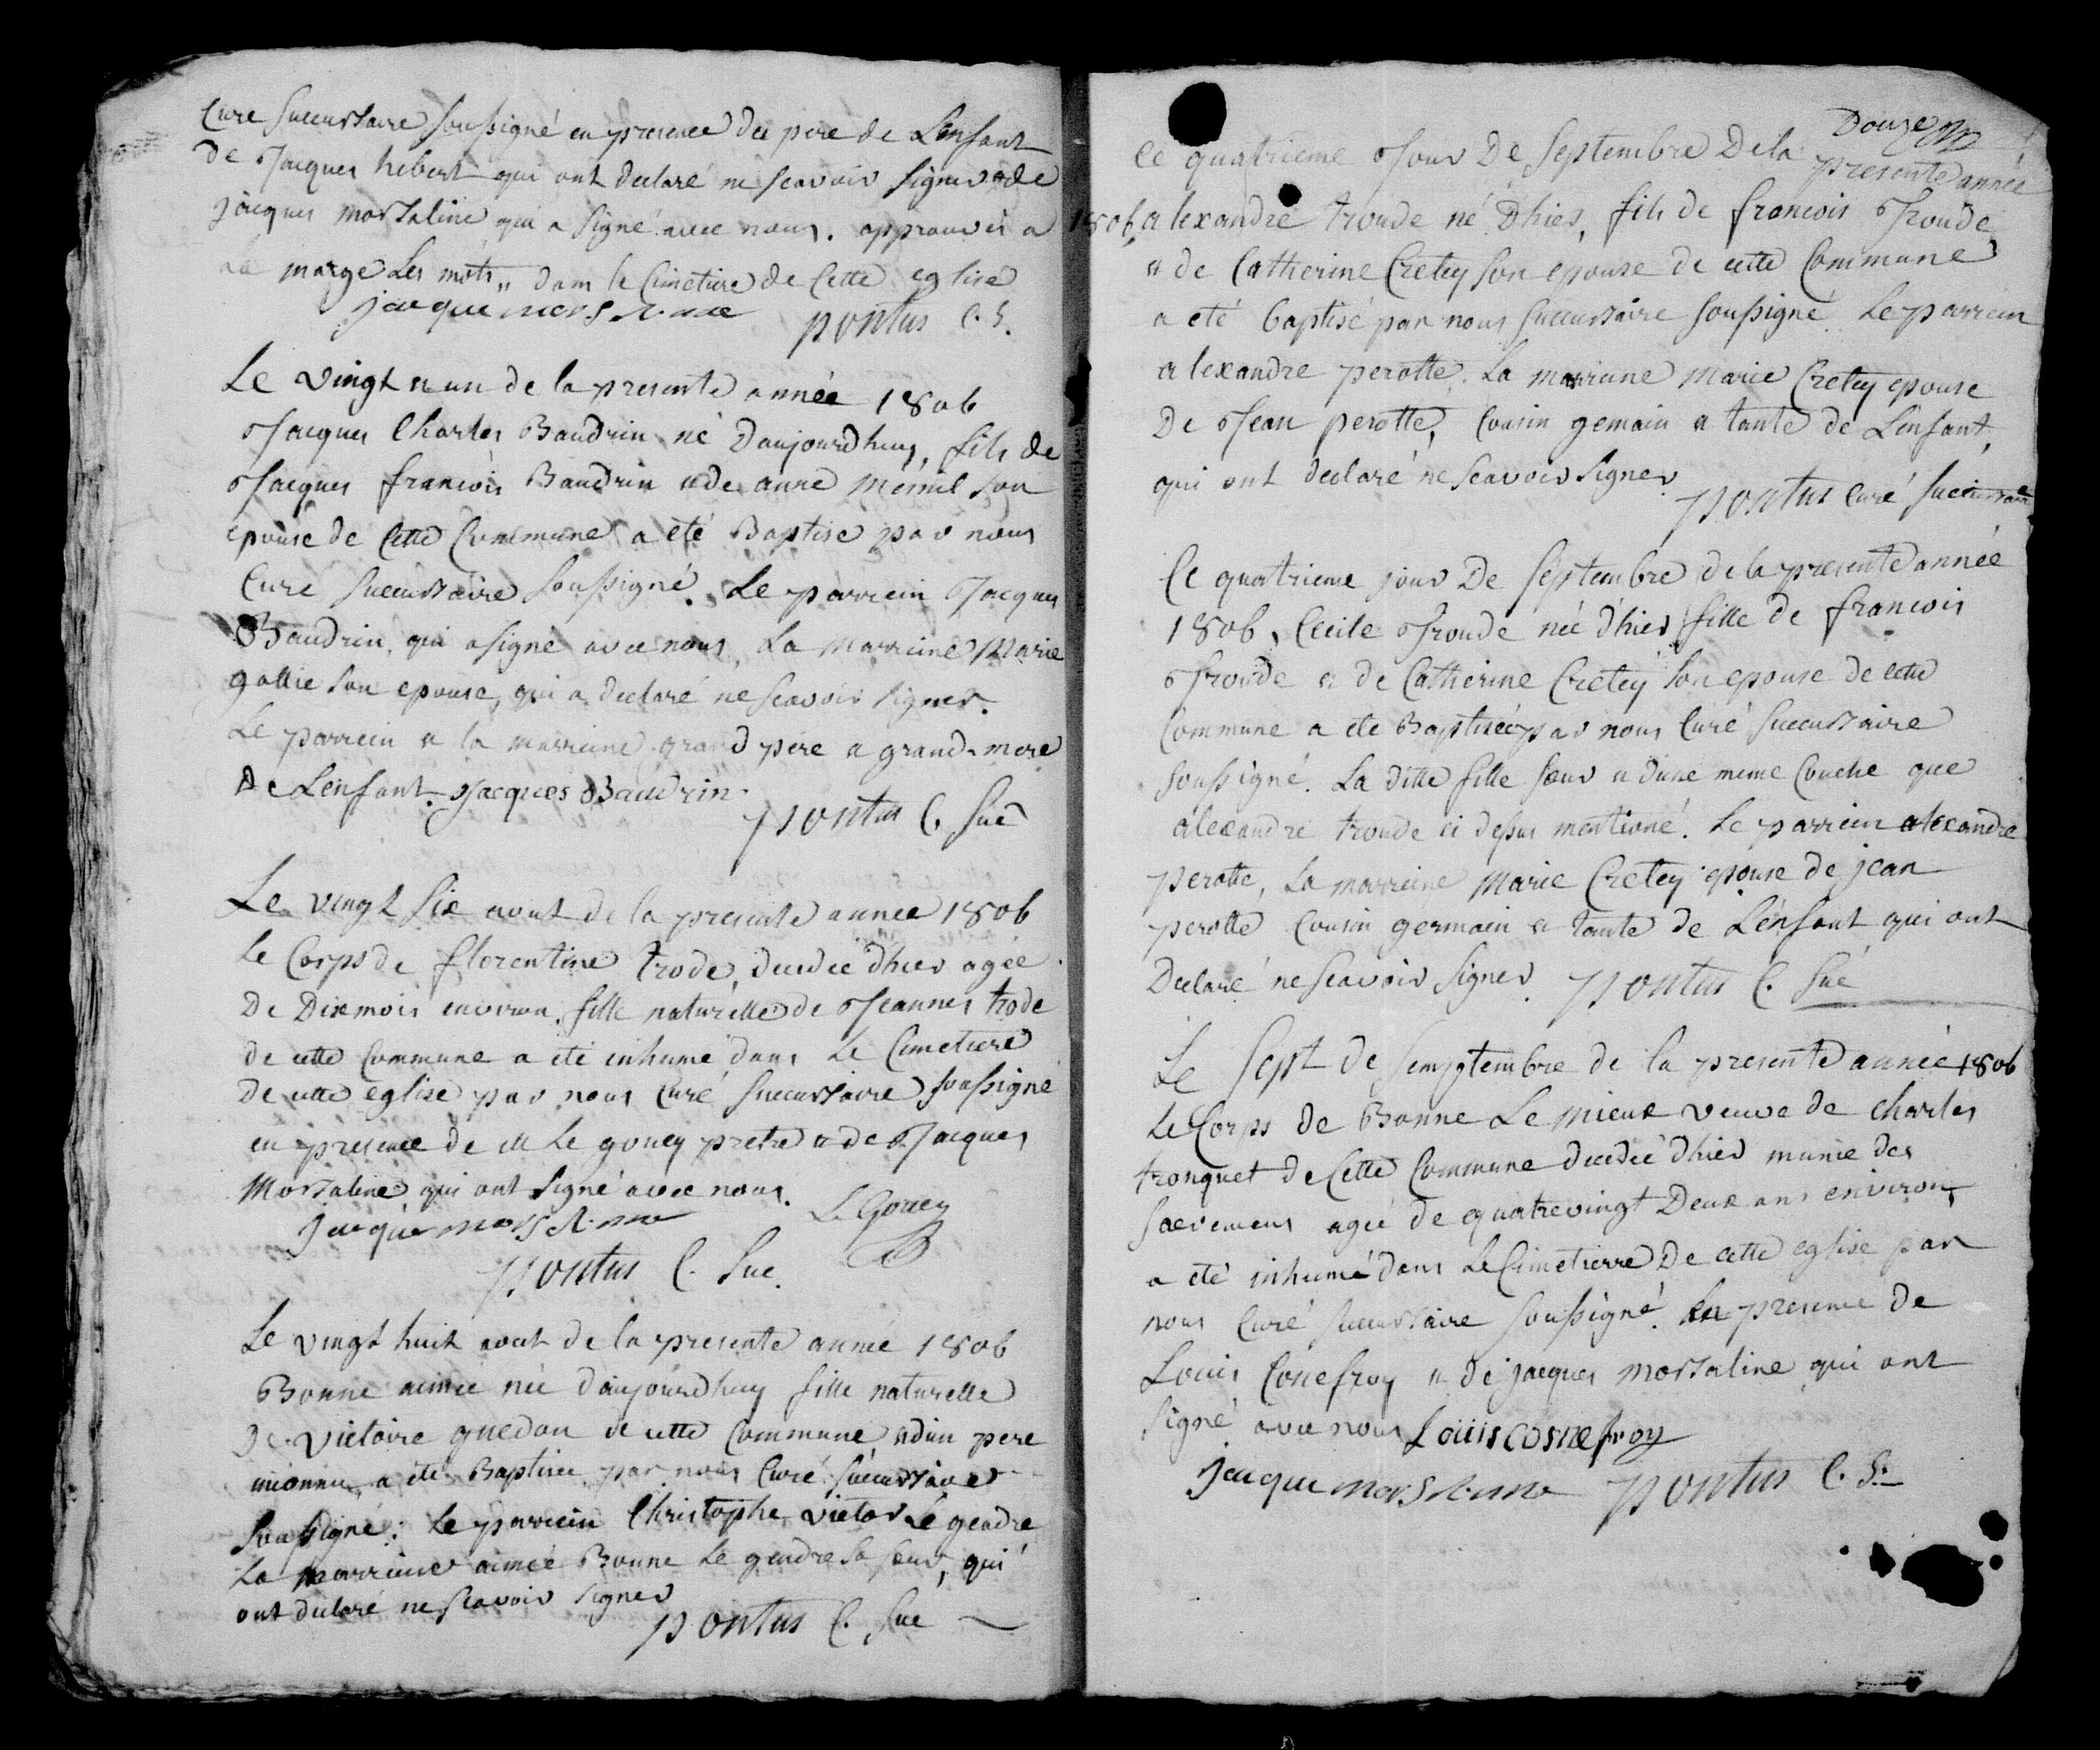 Curé succursaire soussigné en presence du pere de L'enfant
de Jacques hebert qui ont declaré ne scavoir signer et de
jacques mortaline qui a signé avec nous. approuvés a
la marge Les mots,, dans le Cimetiere de Cette eglise
jacque mors l.ine pontus C. S.
Le vingt et un de la presente année 1806
Jacques Charles Baudrin né Daujourdhuy, fils de
Jacques francois Baudrin et de anne mesnil son
epouse de Cette Commune a eté Baptisé par nous
Curé succursaire soussigné. Le parrein Jacques
Baudrin, qui a signé avec nous, La Marreine Marie
gallie son epouse, qui a declaré ne scavoir signer.
Le parrein et la marreine grand pere et grand-mere
De L'enfant. Jacques Baudrin.
pontus C. suc
Le vingt six aout de la presente annee 1806
Le Corps de florentine trode, decedée d'hier agée
De Dix mois environ, fille naturelle de Jeannes trode
de cette Commune a eté inhumé dans Le Cimetiere
de cette eglise par nous Curé succursaire soussigné
en presence de M Le gouey pretre et de Jacques
Mortaline qui ont signé avec nous.
jacque mors l.ine L. Gouey
pontus C. Suc.
Le vingt huit aout de la presente année 1806
Bonne aimée née daujourdhuy fille naturelle
De victoire guedon de cette Commune et d'un pere
inconnu, a eté Baptisée par nous Curé succursaire
soussigné: Le parrein Christophe victor Le gendre
La marreine aimée Bonne Le gendre sa sœur, qui
ont declaré ne scavoir signer
pontus C. Suc
Douze
Ce quatrieme Jour De septembre De la presente année
1806 alexandre troude né D'hier, fils de francois Troude
et de Catherine Cretey son epouse de cette Commune
a eté Baptisé par nous succursaire soussigné. Le parrein
alexandre perotte. La marreine marie Cretey epouse
De Jean perotte, Cousin gemain et tante de L'enfant,
qui ont declaré ne scavoir signer.
pontus Curé succursaire
Ce quatrieme jour De septembre de la presente année
1806, Cecile Troude née d'hier fille de francois
Troude et de Catherine Cretey son epouse de cette
Commune a ete Baptisée par nous Curé succursaire
soussigné. La ditte fille sœur et d'une meme Couche que
alexandre troude ci dessus mentioné. Le parrein alexandre
perotte, La marreine Marie Cretey epouse de jean
perotte Cousin germain et tante de L'enfant qui ont
Declaré ne scavoir signer. pontus C. Suc
Le sept de semptembre de la presente année 1806
Le Corps de Bonne Le mieux veuve de charles
tronquet de Cette Commune decedée d'hier munie des
sacremens agée de quatrevingt Deux ans environ,
a eté inhumé dans Le Cimetierre De cette eglise par
nous Curé succursaire soussigné. En presence de
Louis Conefroy et de jacques mortaline qui ont
signé avec nous Louis cosnefroy
jacque mors l.ine pontus C. S.